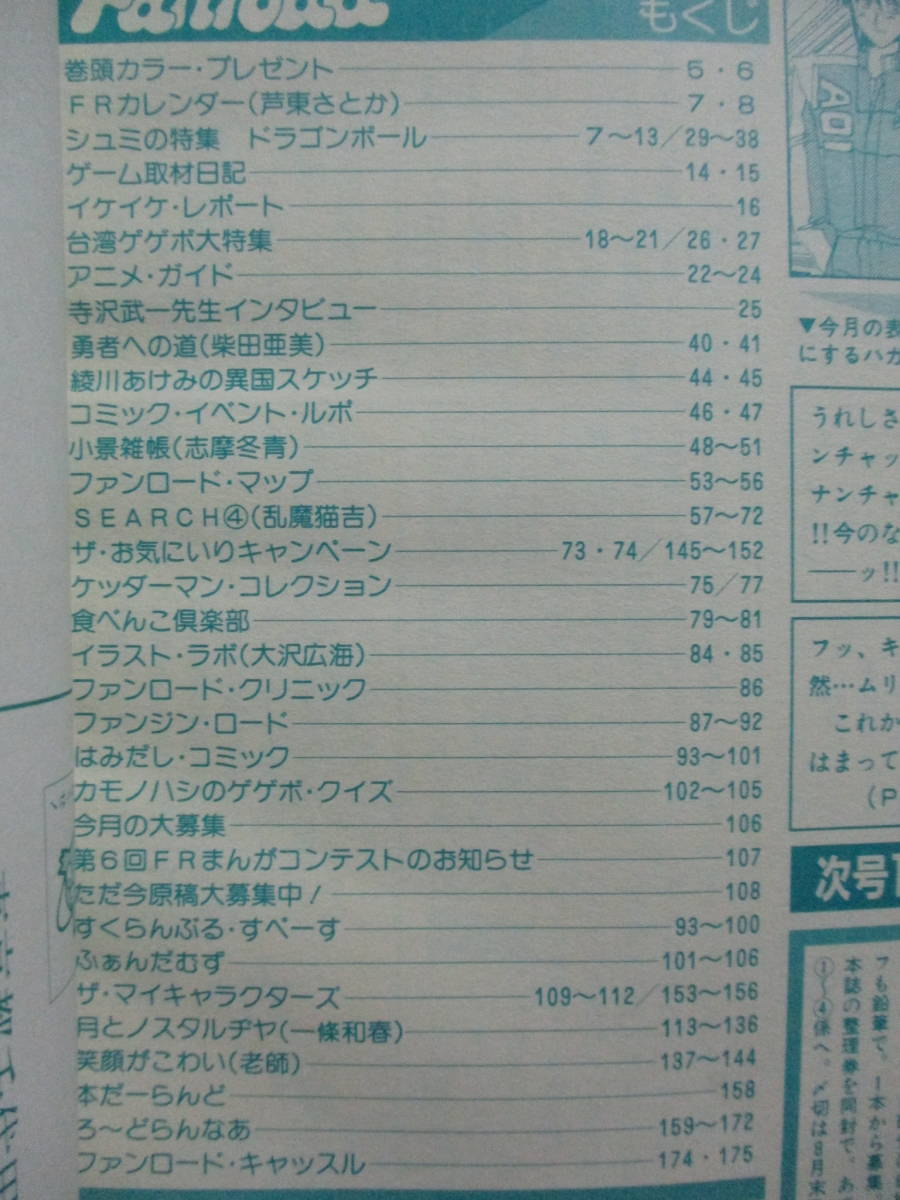 もくじ
巻頭カラー・プレゼント 5・6
FRカレンダー(芦東さとか) 7・8
シュミの特集 ドラゴンボール 7〜13/29〜38
ゲーム取材日記 14・15
イケイケ・レポート 16
台湾ゲゲボ大特集 18〜21/26・27
アニメ・ガイド 22〜24
寺沢武一先生インタビュー 25
勇者への道(柴田亜美) 40・41
綾川あけみの異国スケッチ 44・45
コミック・イベント・ルポ 46・47
小景雑帳(志摩冬青) 48〜51
ファンロード・マップ 53〜56
SEARCH④(乱魔猫吉) 57〜72
ザ・お気にいりキャンペーン 73・74/145〜152
ケッダーマン・コレクション 75/77
食べんこ倶楽部 79〜81
イラスト・ラボ(大沢広海) 84・85
ファンロード・クリニック 86
ファンジン・ロード 87〜92
はみだし・コミック 93〜101
カモノハシのゲゲボ・クイズ 102〜105
今月の大募集 106
第6回FRまんがコンテストのお知らせ 107
ただ今原稿大募集中! 108
すくらんぶる・すぺーす 93〜100
ふぁんだむず 101〜106
ザ・マイキャラクターズ 109〜112/153〜156
月とノスタルヂヤ(一條和春) 113〜136
笑顔がこわい(老師) 137〜144
本だーらんど 158
ろ〜どらんなあ 159〜172
ファンロード・キャッスル 174・175
AOI
▼今月の表
にするハガ
うれしさ
ンチャッ
ナンチャ
!!今のな
――ッ!!
フッ、キ
然…ムリ
これか
はまって
(P
次号
フも鉛筆で。1本から募集
本誌の整理券を同封で。あ
①〜④係へ。〆切は8月末